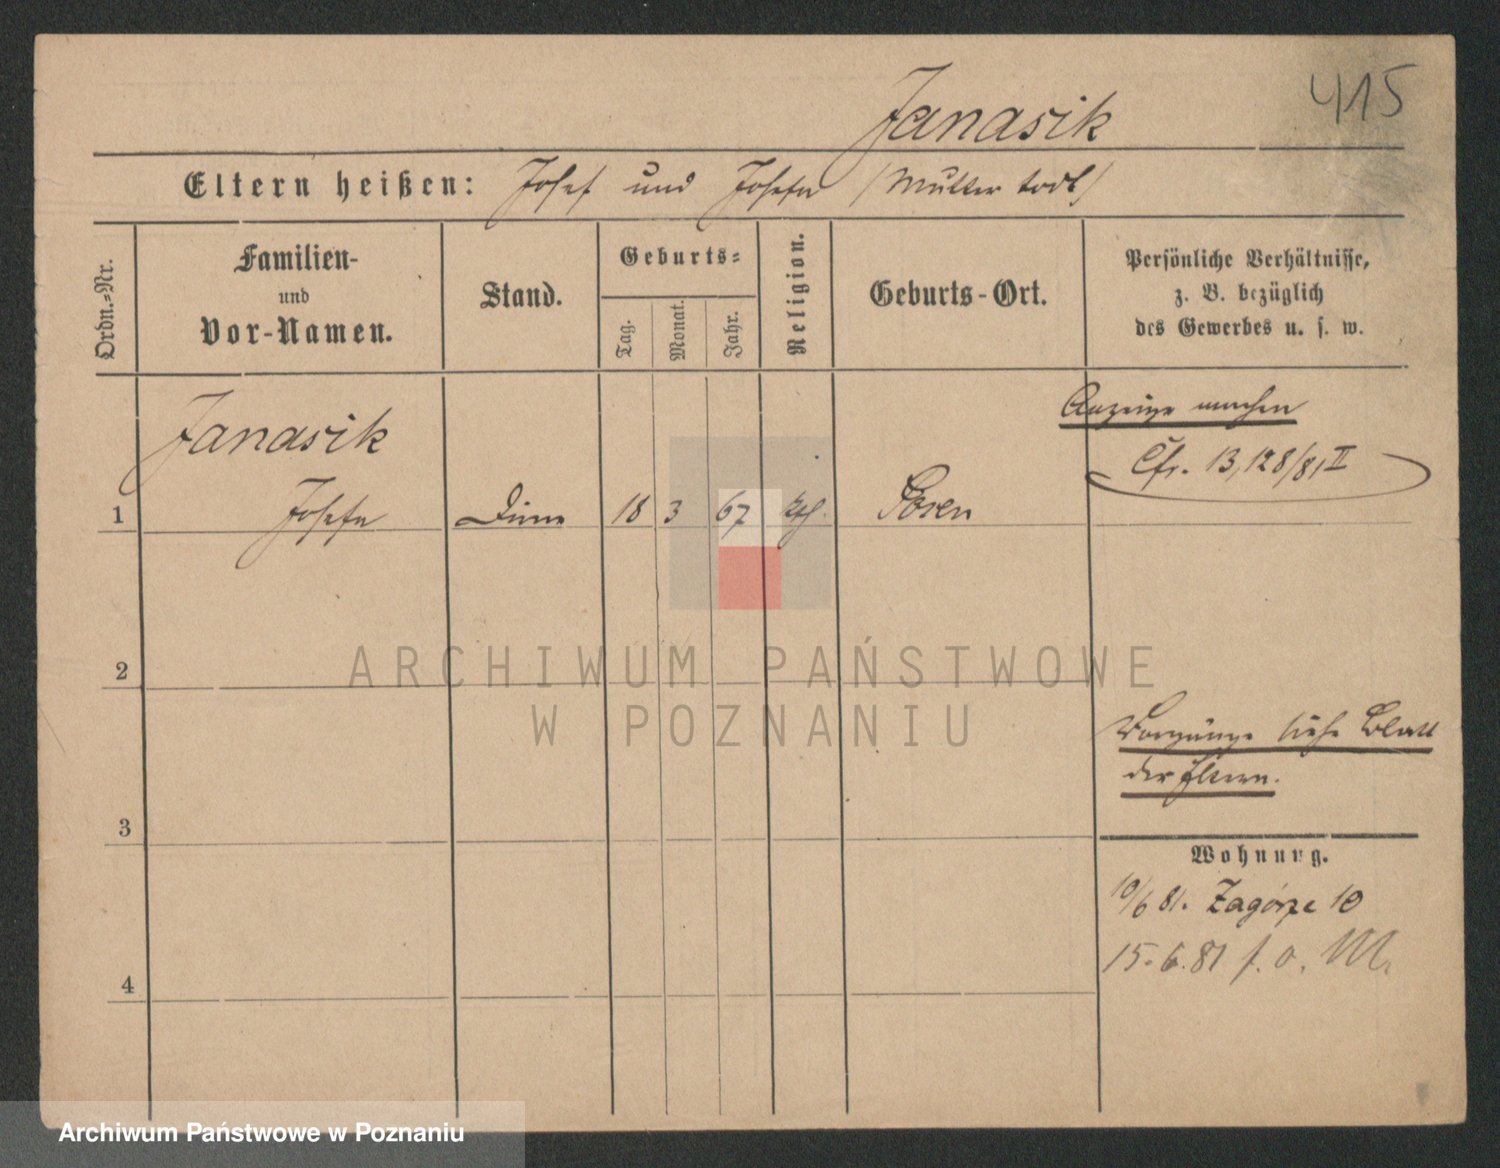 415
Janasik
Eltern heißen: Josef und Josefa (Mutter todt)
Ordn.-Nr.
Familien-
und
Vor-Namen.
Stand.
Geburts-
Tag.
Monat.
Jahr.
Religion.
Geburts-Ort.
Persönliche Verhältnisse,
z. B. bezüglich
des Gewerbes u. s. w.
Anzeige machen
Cfr. 13,128/81 II
Janasik
1 Josefa Dirne 18 3 67 kth. Posen
2
ARCHIWUM PAŃSTWOWE
W POZNANIU
Vorgänge siehe Blatt
der Eltern.
3
Wohnung.
10/6 81. Zagórze 10
15.6.81 f. o. M.
4
Archiwum Państwowe w Poznaniu